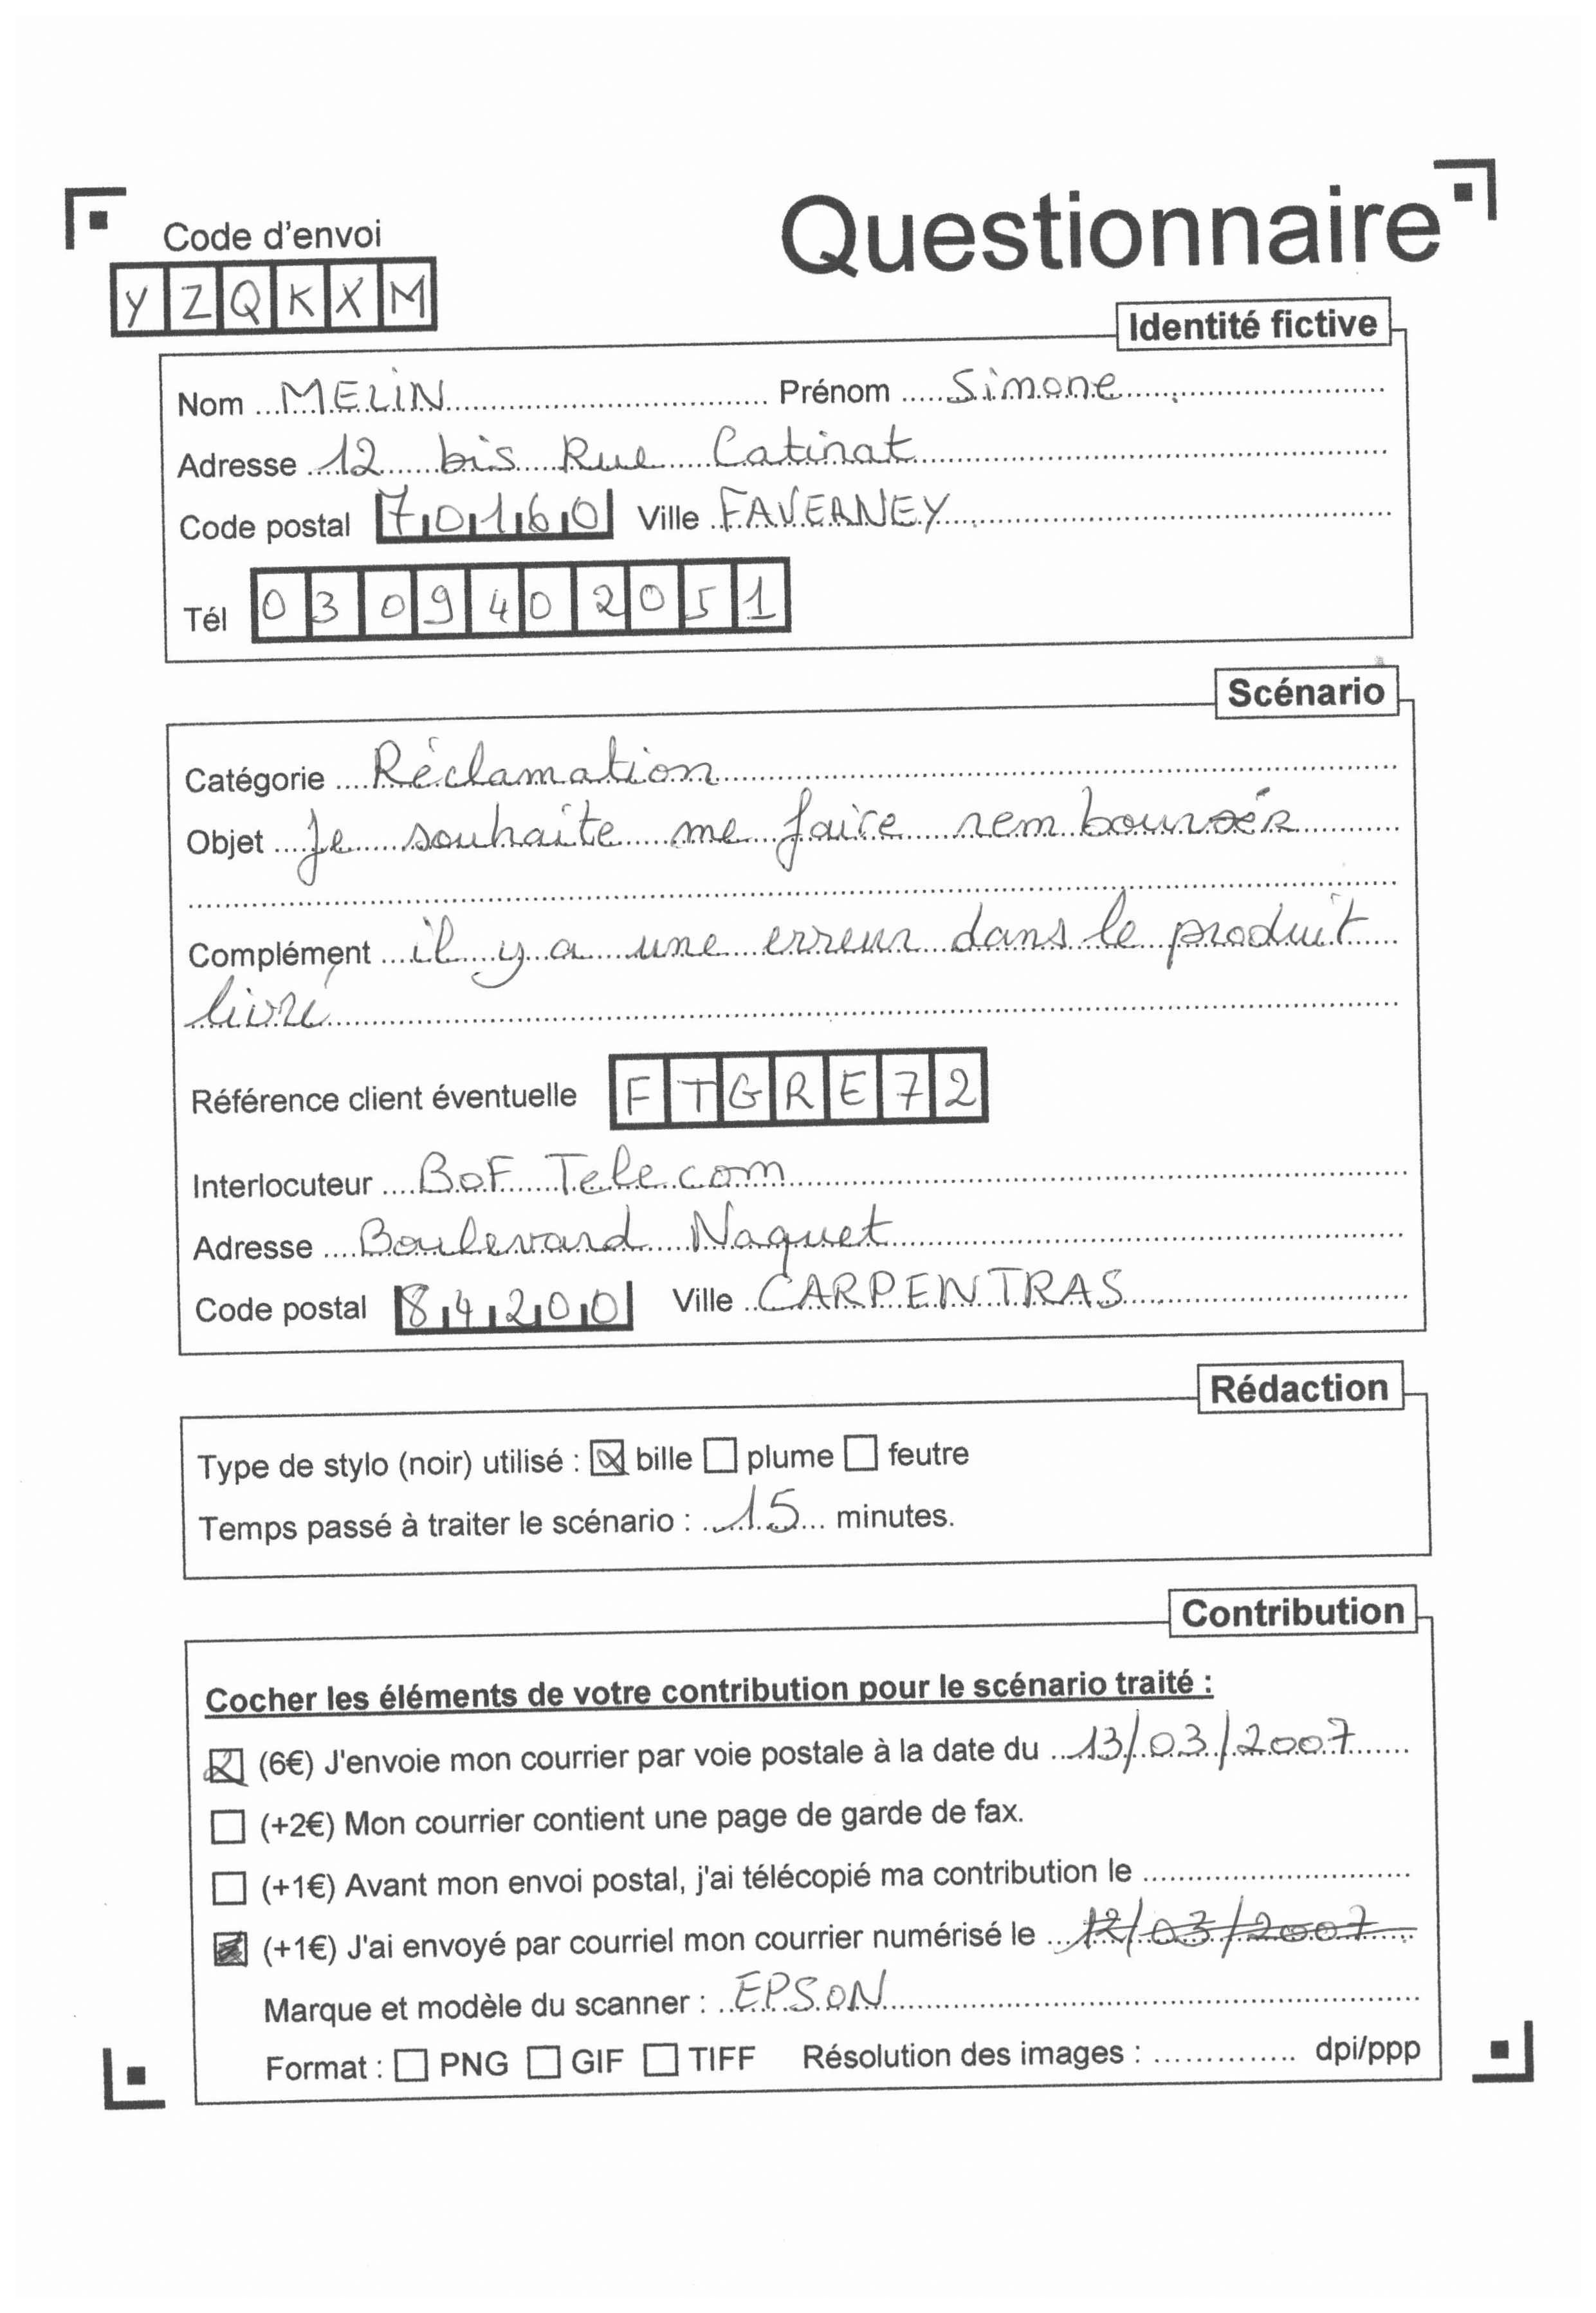 Questionnaire
Code d'envoi
YZQKXM
Identité fictive
Nom MELIN Prénom Simone
Adresse 12 bis Rue Catinat
Code postal 70160 Ville FAVERNEY
Tél 0309402051
Scénario
Catégorie Réclamation
Objet Je souhaite me faire rembourser
Complément il y a une erreur dans le produit
livré
Référence client éventuelle FTGRE72
Interlocuteur BoF Telecom
Adresse Boulevard Naquet
Code postal 84200 Ville CARPENTRAS
Rédaction
Type de stylo (noir) utilisé : ☒ bille ☐ plume ☐ feutre
Temps passé à traiter le scénario : 15 minutes.
Contribution
Cocher les éléments de votre contribution pour le scénario traité :
☒ (6€) J'envoie mon courrier par voie postale à la date du 13/03/2007
☐ (+2€) Mon courrier contient une page de garde de fax.
☐ (+1€) Avant mon envoi postal, j'ai télécopié ma contribution le
☒ (+1€) J'ai envoyé par courriel mon courrier numérisé le 12/03/2007
Marque et modèle du scanner : EPSON
Format : ☐ PNG ☐ GIF ☐ TIFF Résolution des images : dpi/ppp